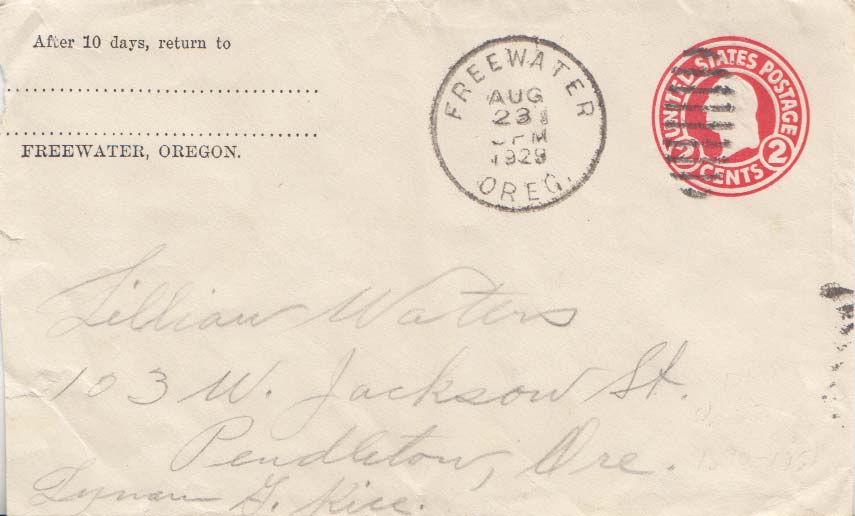 After 10 days, return to
FREEWATER, OREGON.
FREEWATER
AUG
23
PM
1929
OREG.
UNITED STATES POSTAGE
2 CENTS 2
Lillian Waters
103 W. Jackson St.
Pendleton, Ore.
Lyman G. Rice.